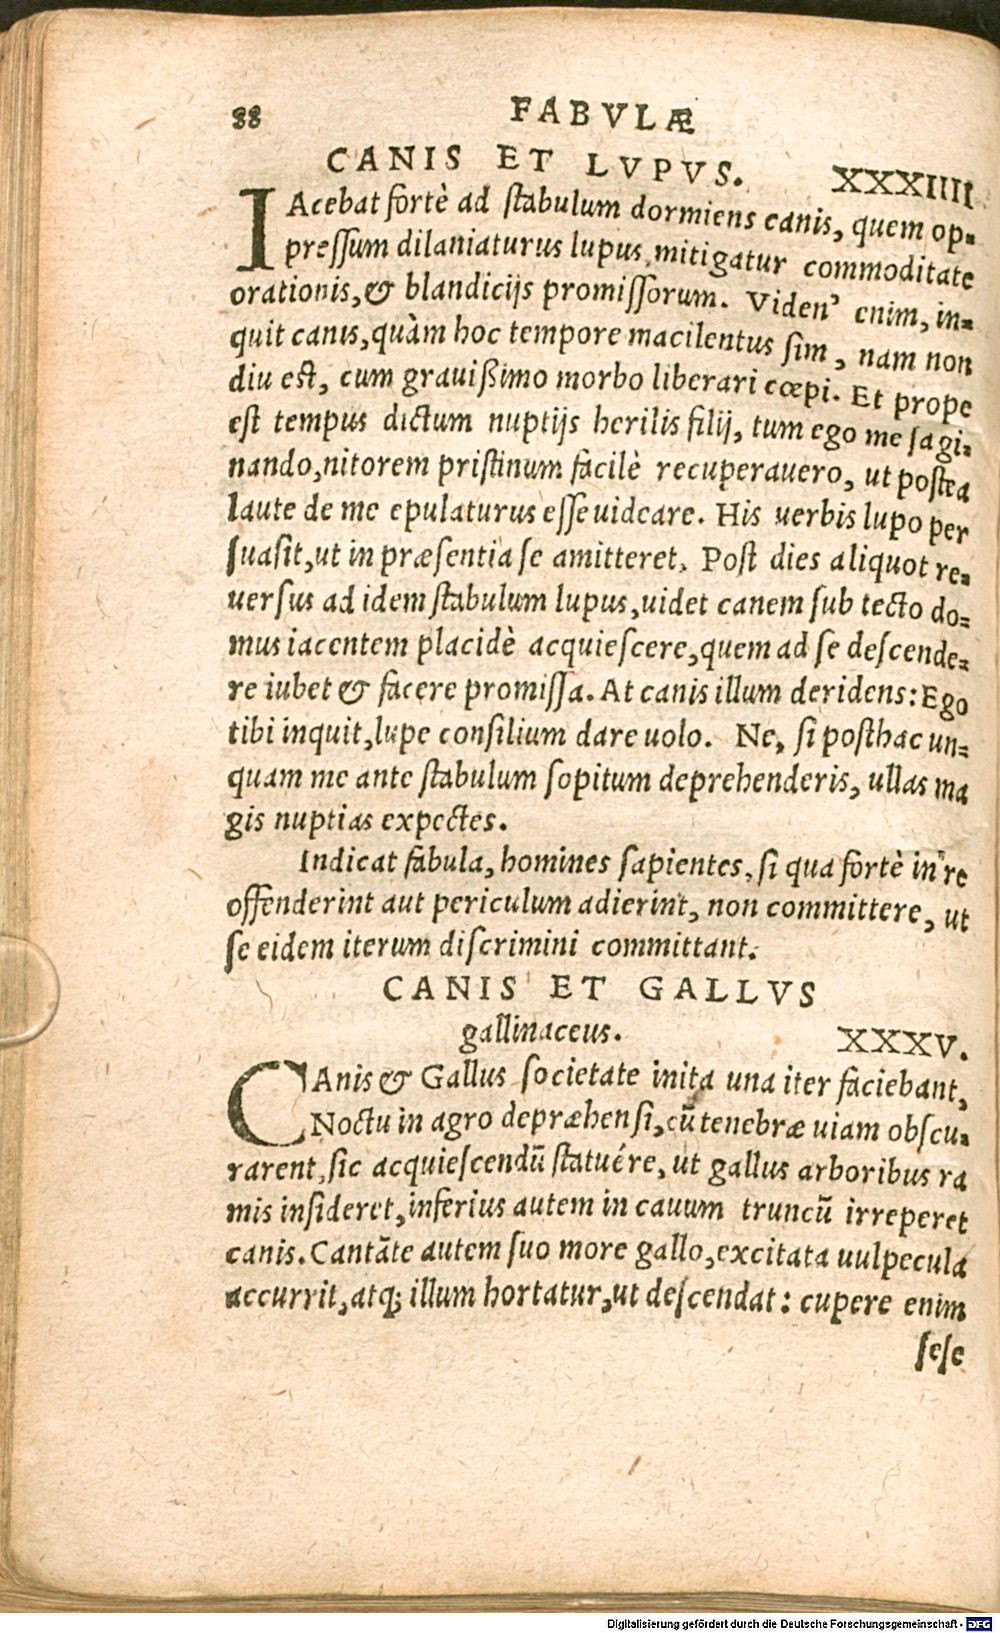 88 FABVLÆ
CANIS ET LVPVS. XXXIIII
IAcebat fortè ad stabulum dormiens canis, quem op-
pressum dilaniaturus lupus, mitigatur commoditate
orationis, & blandicijs promissorum. Viden' enim, in-
quit canis, quàm hoc tempore macilentus sim, nam non
diu est, cum grauißimo morbo liberari cœpi. Et prope
est tempus dictum nuptijs herilis filij, tum ego me sagi-
nando, nitorem pristinum facilè recuperauero, ut postea
laute de me epulaturus esse uideare. His uerbis lupo per
suasit, ut in præsentia se amitteret. Post dies aliquot re-
uersus ad idem stabulum lupus, uidet canem sub tecto do-
mus iacentem placidè acquiescere, quem ad se descende-
re iubet & facere promissa. At canis illum deridens: Ego
tibi inquit, lupe consilium dare uolo. Ne, si posthac un-
quam me ante stabulum sopitum deprehenderis, ullas ma
gis nuptias expectes.
Indicat fabula, homines sapientes, si qua fortè in re
offenderint aut periculum adierint, non committere, ut
se eidem iterum discrimini committant.
CANIS ET GALLVS
gallinaceus. XXXV.
CAnis & Gallus societate inita una iter faciebant,
Noctu in agro depræhensi, cũ tenebræ uiam obscu-
rarent, sic acquiescendũ statuére, ut gallus arboribus ra
mis insideret, inferius autem in cauum truncũ irreperet
canis. Cantãte autem suo more gallo, excitata uulpecula
accurrit, atq; illum hortatur, ut descendat: cupere enim
sese
Digitalisierung gefördert durch die Deutsche Forschungsgemeinschaft - DFG